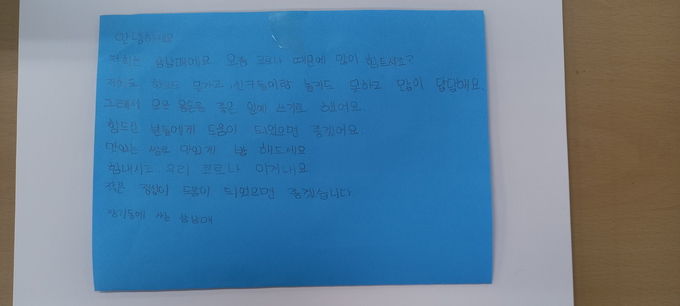 안녕하세요
저희는 삼남매예요. 요즘 코로나 때문에 많이 힘드시죠?
저희도 학교도 못가고 친구들이랑 놀지도 못하고 많이 답답해요.
그래서 모은 용돈을 좋은 일에 쓰기로 했어요.
힘드신 분들에게 도움이 되었으면 좋겠어요.
맛있는 쌀로 맛있게 밥 해드세요
힘내시고 우리 코로나 이겨내요
작은 정성이 도움이 되었으면 좋겠습니다
삼남매